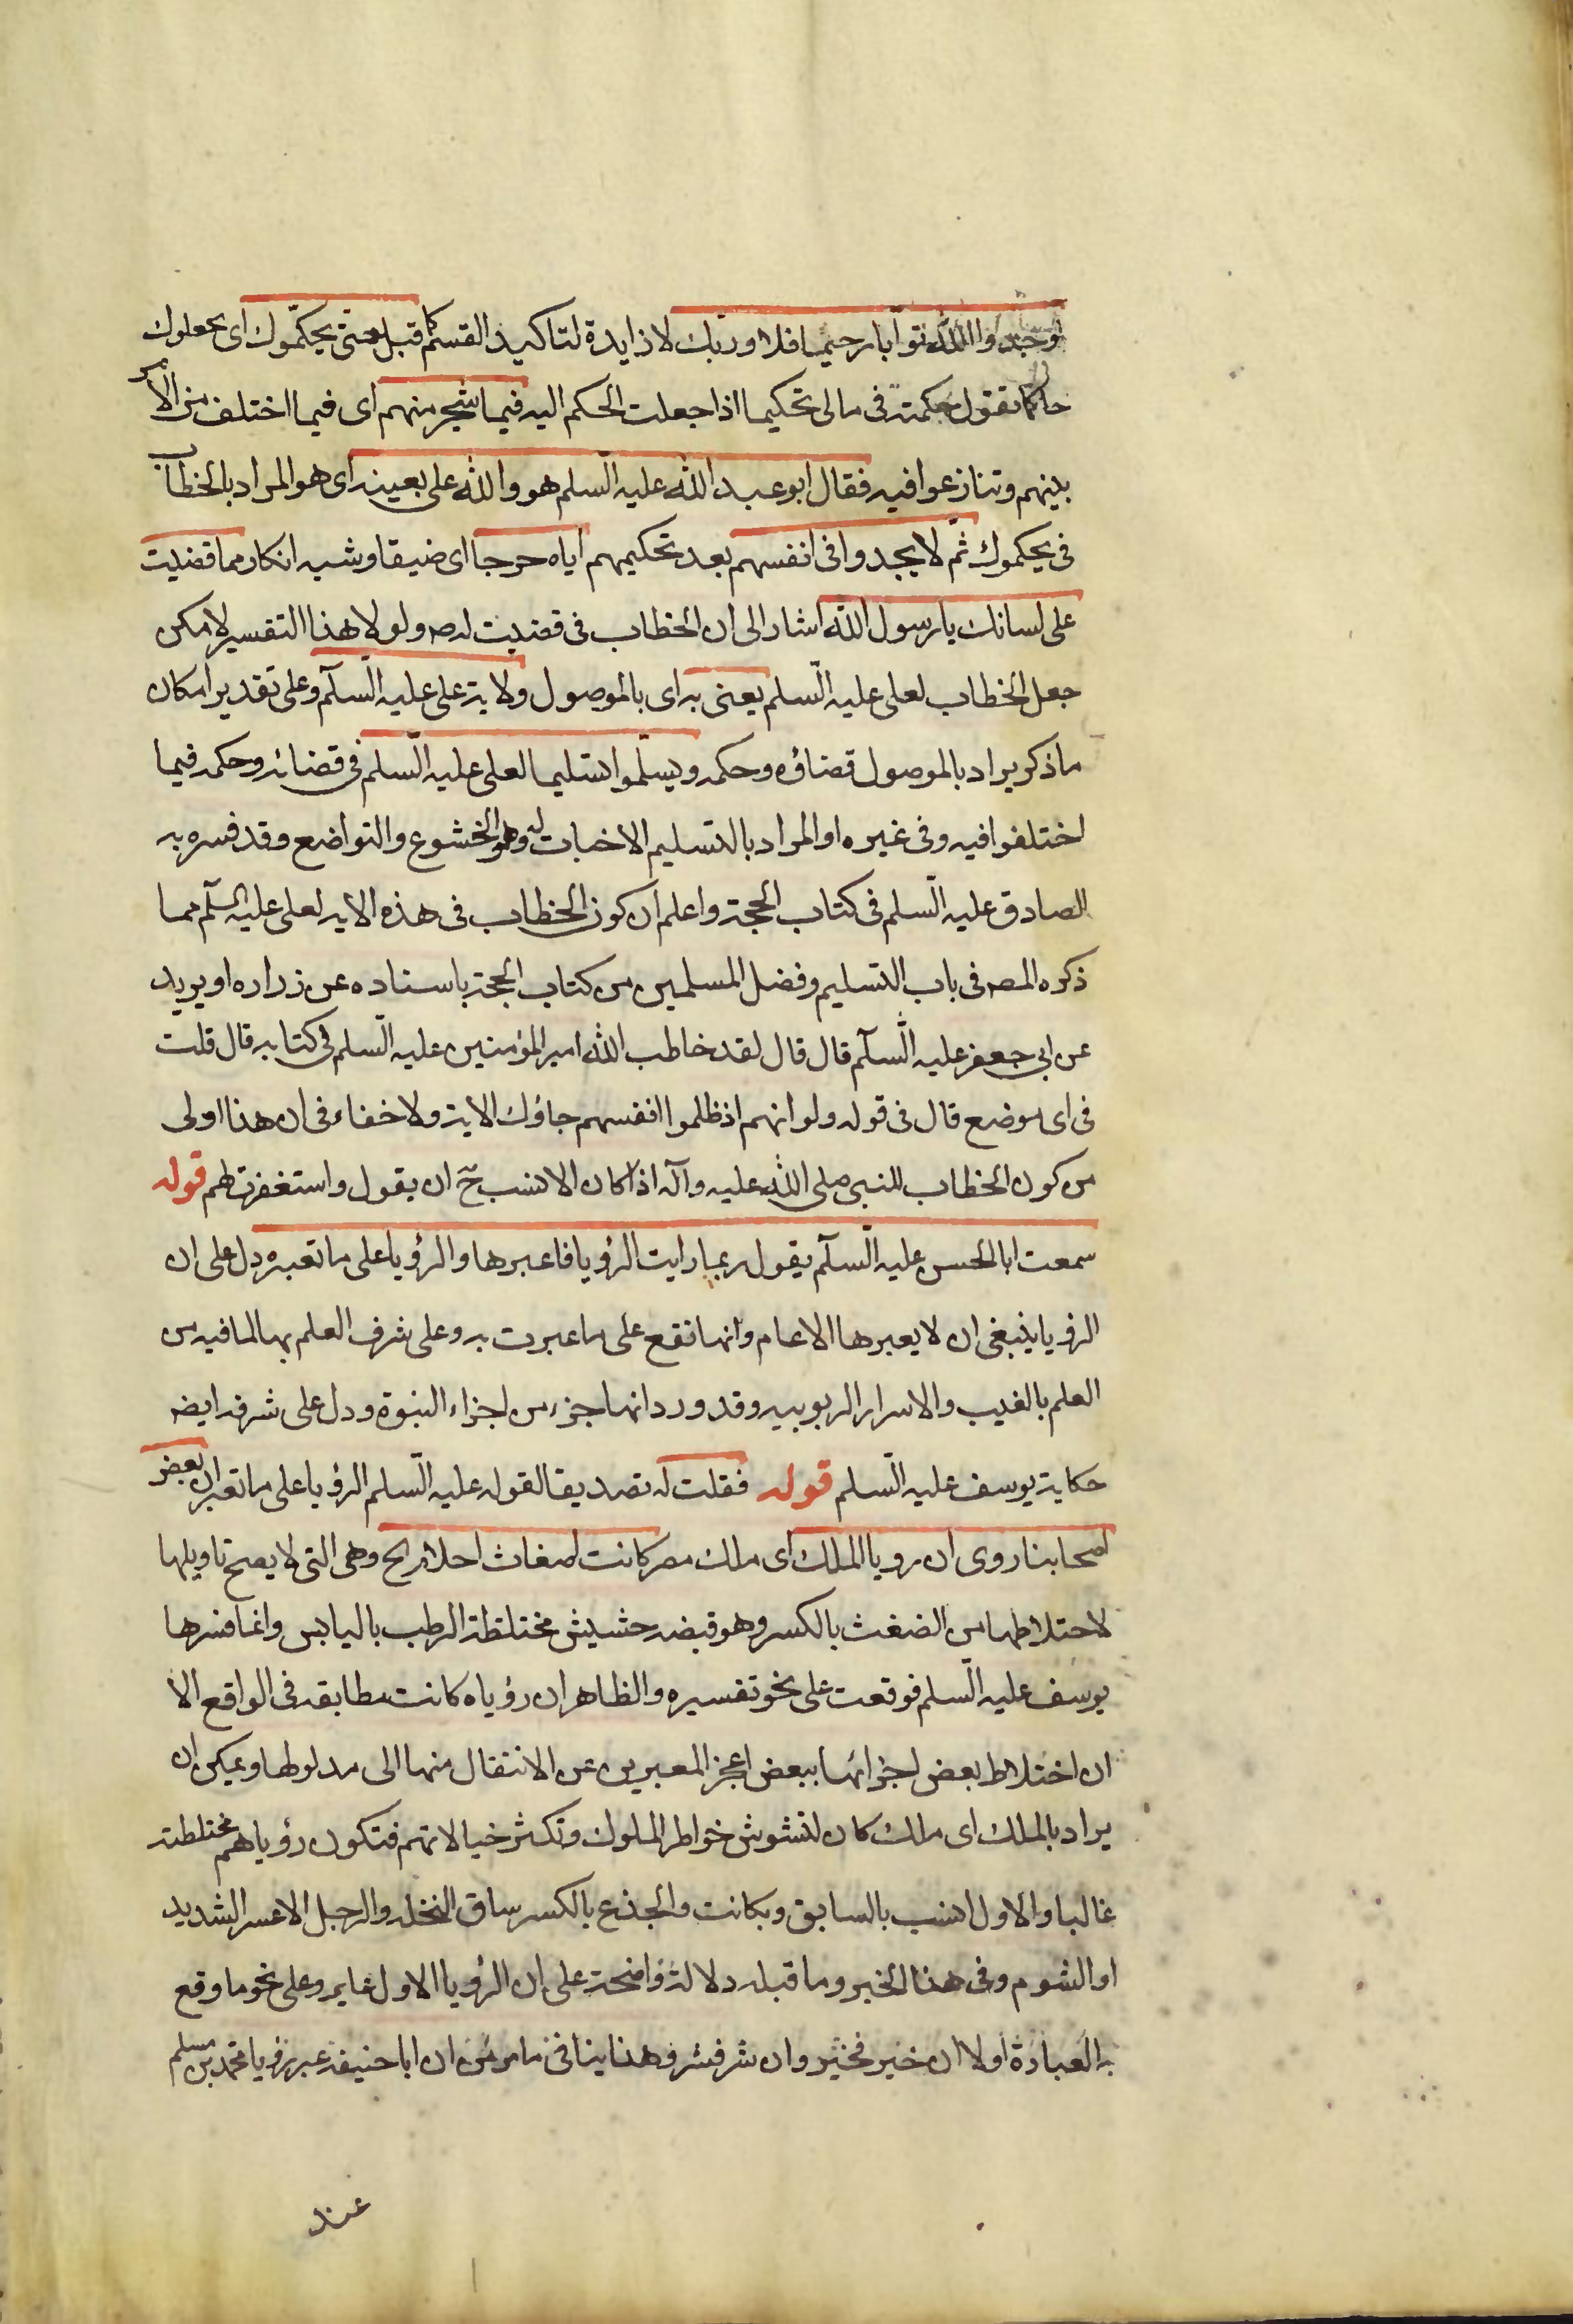 لوجدوا الله توابا رحيما فلا وربك لا زايدة لتاكيد القسم كما قبل حتى يحكّموك اى يجعلوك
حاكما تقول حكمته فى مالى تحكيما اذا جعلت الحكم اليه فيما شجر منهم اى فيما اختلف من الامر
بينهم وتنازعوا فيه فقال ابو عبد الله عليه السّلم هو والله على بعينه اى هو المراد بالخطاب
فى يحكموك ثم لا يجدوا فى انفسهم بعد تحكيمهم اياه حرجا اى ضيقا وشبه انكار مما قضيت
على لسانك يا رسول الله اشار الى ان الخطاب فى قضيت له ص ولولا هذا التفسير لامكن
جعل الخطاب لعلى عليه السّلم يعنى به اى بالموصول ولاية على عليه السّلم وعلى تقدير امكان
ما ذكر يراد بالموصول قضاؤه وحكمه ويسلّموا تسليما لعلى عليه السّلم فى قضائه وحكمه فيما
اختلفوا فيه وفى غيره او المراد بالتسليم الاخبات له وهو الخشوع والتواضع وقد فسره به
الصادق عليه السّلم فى كتاب الحجة واعلم ان كون الخطاب فى هذه الايه لعلى عليه السلم مما
ذكره المصه فى باب التسليم وفضل المسلمين من كتاب الحجة باسناده عن زراره او بريد
عن ابى جعفر عليه السّلم قال قال لقد خاطب الله امير المؤمنين عليه السّلم فى كتابه قال قلت
فى اى موضع قال فى قوله ولو انهم اذ ظلموا انفسهم جاؤك الاية ولا خفاء فى ان هذا اولى
من كون الخطاب للنبى صلى الله عليه وآله اذ كان الانسب ح ان يقول واستغفرت لهم قوله
سمعت ابا الحسن عليه السّلم يقول ربما رايت الرؤيا فاعبرها والرؤيا على ما تعبر دل على ان
الرؤيا ينبغى ان لا يعبرها الا عام وانها تقع على ما عبرت به وعلى شرف العلم بها لما فيه من
العلم بالغيب والاسرار الربوبيه وقد ورد انها جزء من اجزاء النبوة ودل على شرفه ايضه
حكاية يوسف عليه السّلم قوله فقلت له تصديقا لقوله عليه السّلم الرؤيا على ما تعبر ان بعض
اصحابنا روى ان رويا الملك اى ملك مصر كانت اضغاث احلام الخ وهى التى لا يصح تاويلها
لاختلاطها من الضغث بالكسر وهو قبضه حشيش مختلطة الرطب باليابس وانما فسرها
يوسف عليه السّلم فوقعت على نحو تفسيره والظاهر ان رؤياه كانت مطابقه فى الواقع الا
ان اختلاط بعض اجزائها ببعض اعجز المعبرين عن الانتقال منها الى مدلولها ويمكن ان
يراد بالملك اى ملك كان لتشوش خواطر الملوك وتكثر خيالاتهم فتكون رؤياهم مختلطة
غالبا والاول انسب بالسابق وبكانت والجذع بالكسر ساق النخله والرجل الاعسر الشديد
او الشوم وفى هذا الخبر وما قبله دلالة واضحة على ان الرؤيا الاول عابر وعلى نحو ما وقع
به العبارة اولا ان خير فخير وان شر فشر وهذا ينافى ما مر من ان ابا حنيفه عبر رؤيا محمد بن مسلم
عند